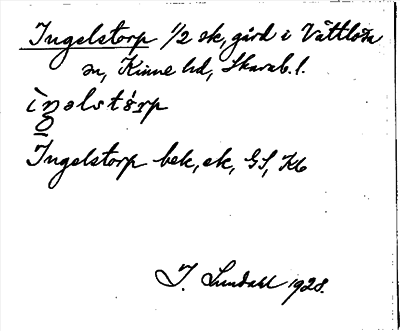 Ingelstorp 1/2 sk, gård i Vättlösa
sn, Kinne hd, Skarab. l.
Ingelstorp bek, ek, GS, Kb
I. Lundahl 1928.